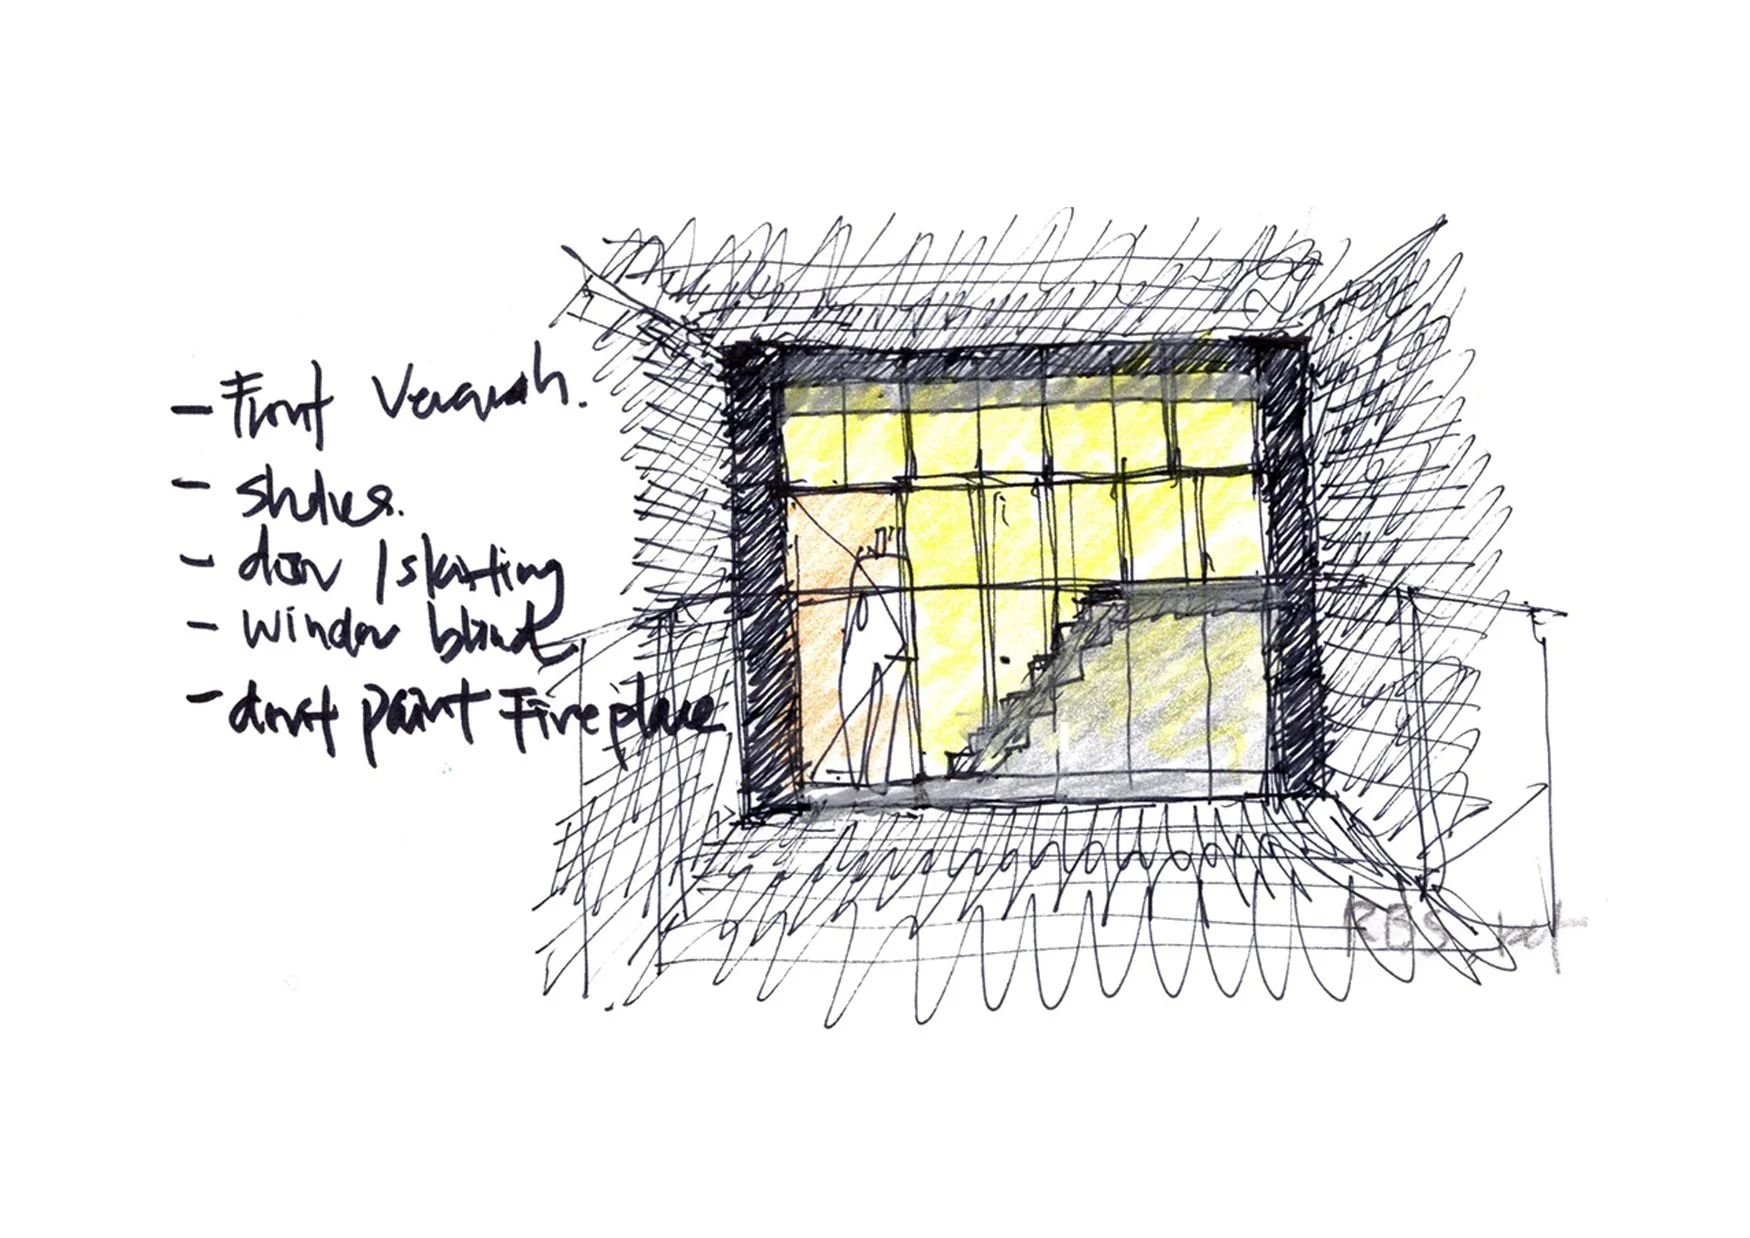 - Front Verandah.
- shelves.
- door / skirting
- window blinds
- dont paint Fireplace